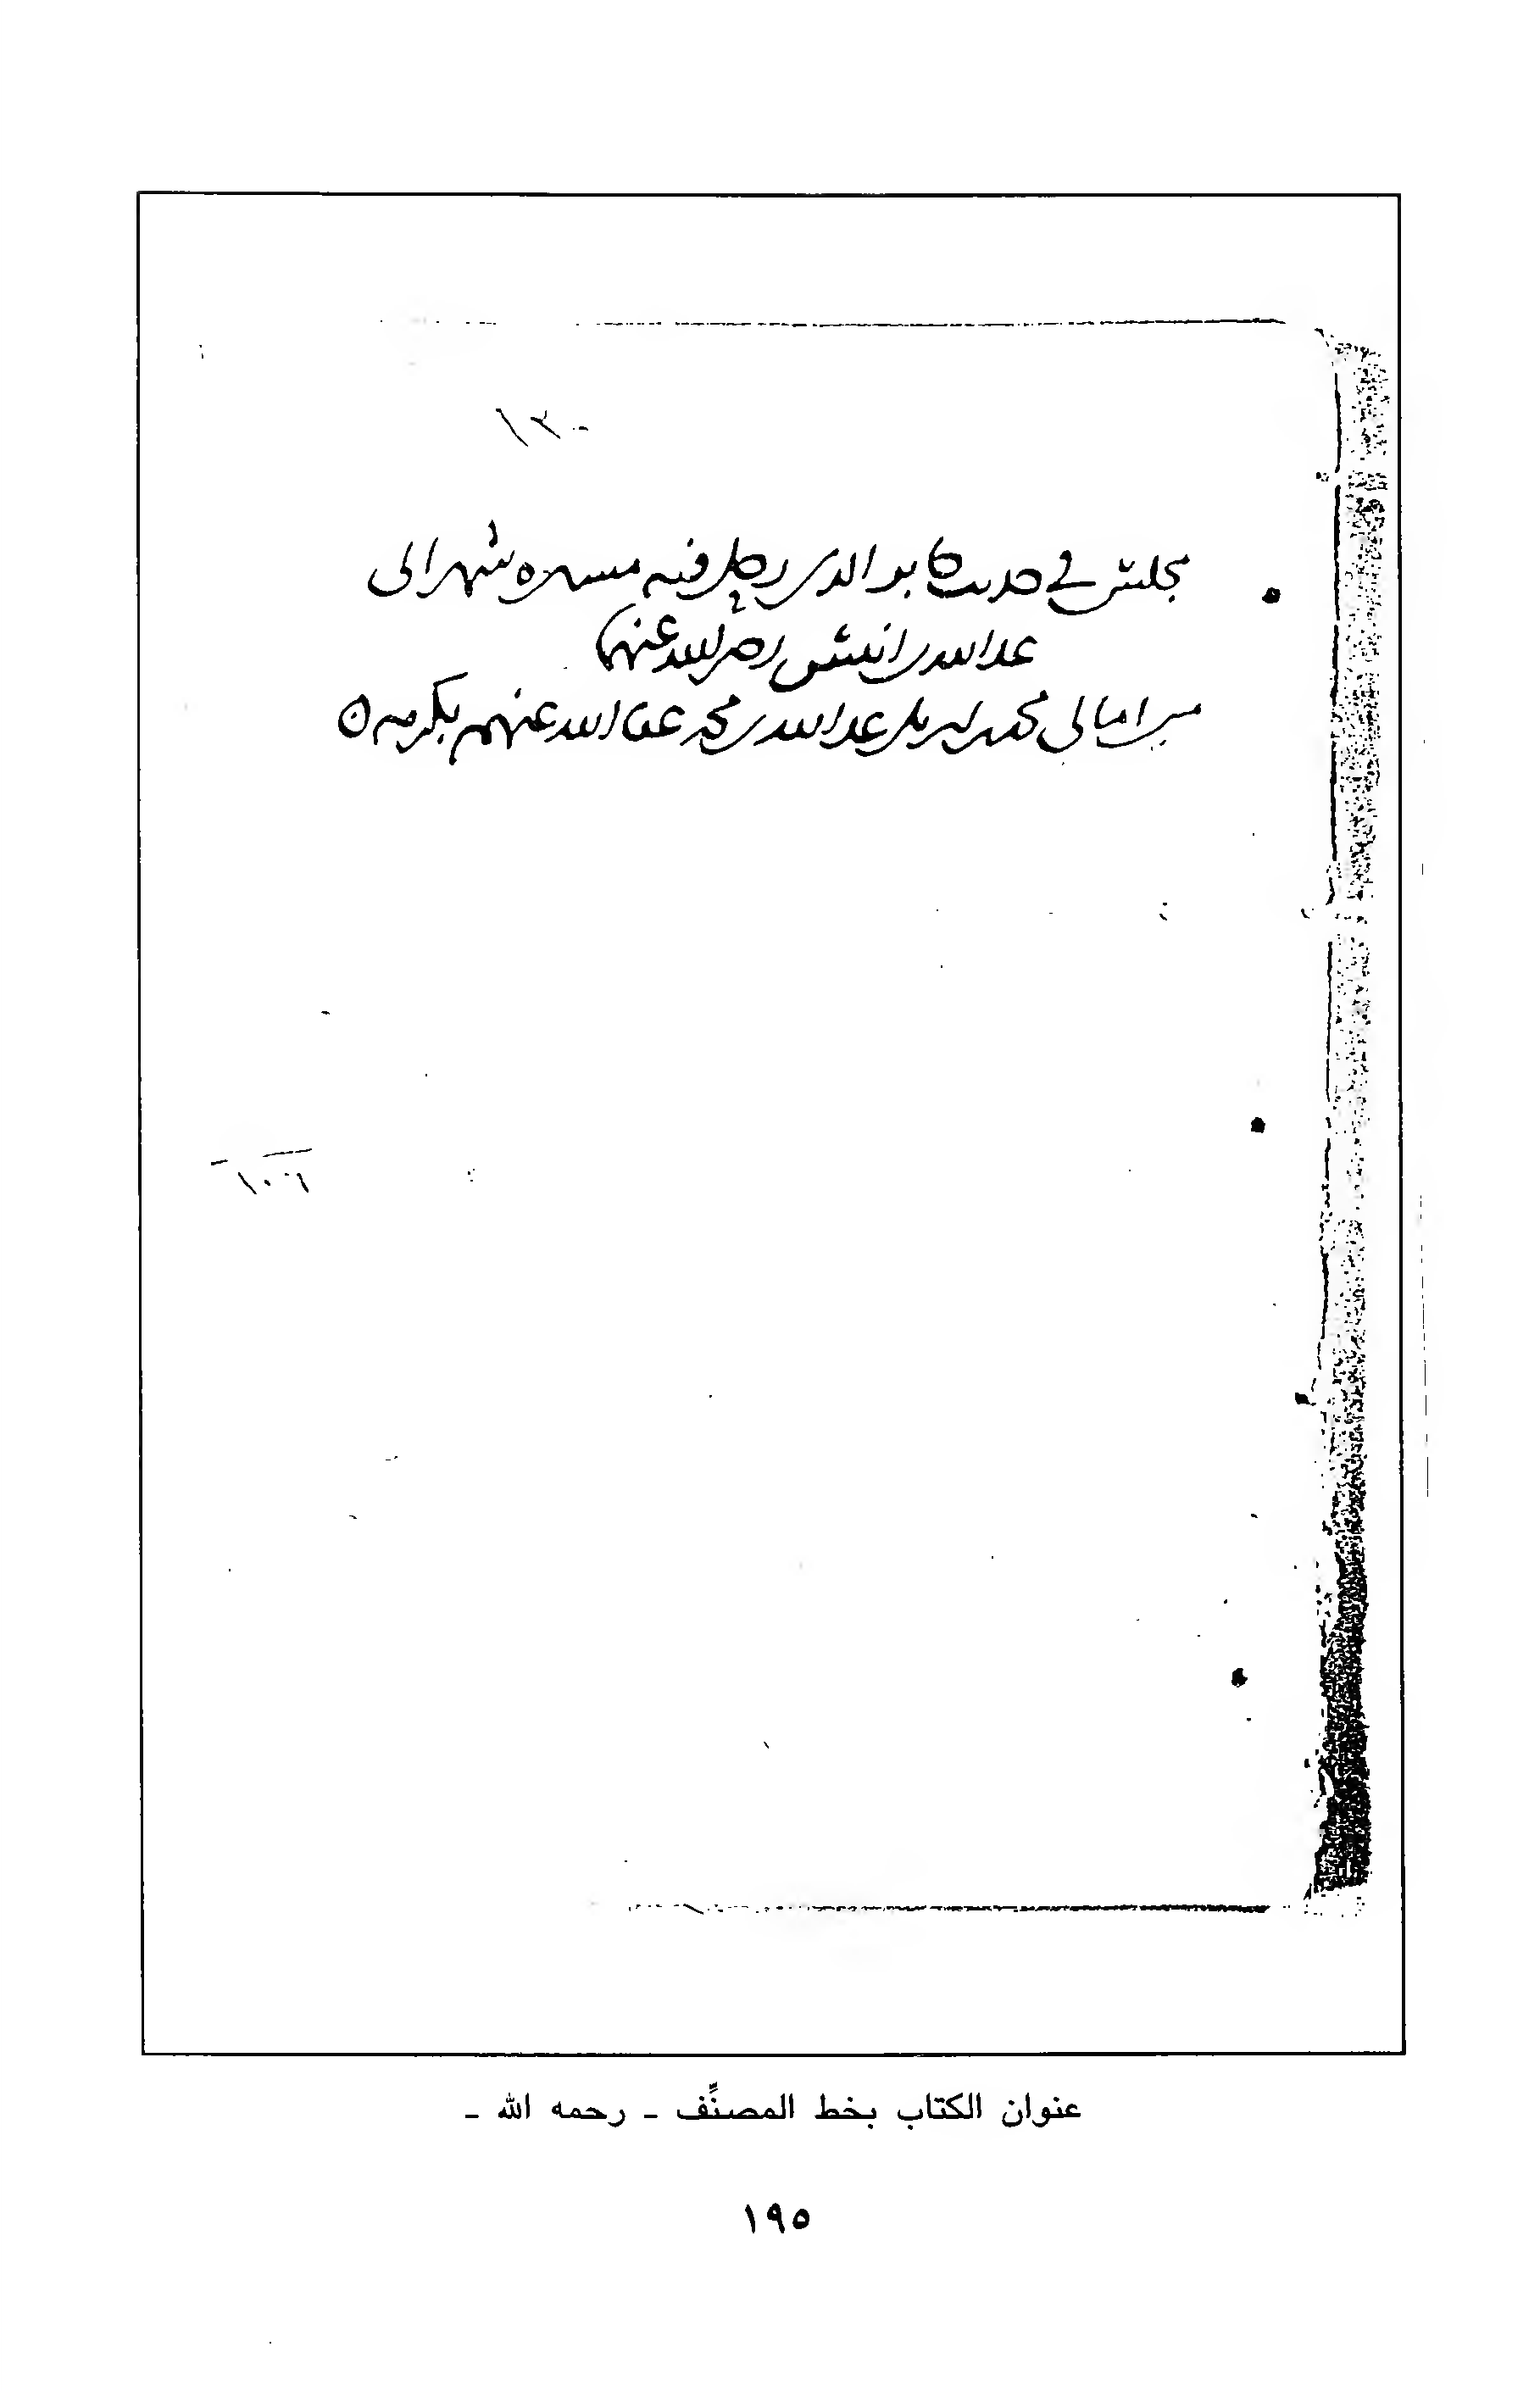 ١٣٠
مجلس في حديث جابر الذي رحل فيه مسيرة شهر إلى
عبد الله بن أنيس رضي الله عنهما
من أمالي محمد بن أبي بكر عبد الله بن محمد عفا الله عنهم بكرمه ه
١٠٦
عنوان الكتاب بخط المصنِّف ـ رحمه الله ـ
١٩٥